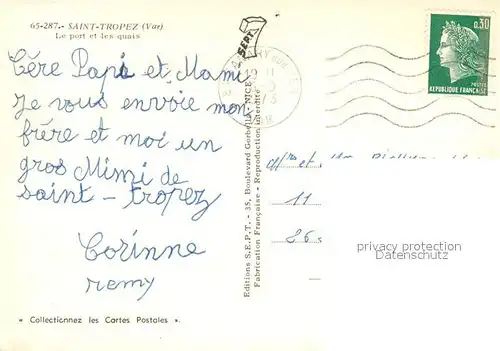 65-287.- SAINT-TROPEZ (Var)
Le port et les quais
Cére Papi et Mami
Je vous envoie mon
frére et moi un
gros Mimi de
saint - tropez
Corinne
remy
« Collectionnez les Cartes Postales ».
Editions S.E.P.T. - 35, Boulevard Gerbella, NICE
Fabrication Française - Reproduction interdite
SEPT
0,30
POSTES
REPUBLIQUE FRANÇAISE
Mr et Mm
11
86
privacy protection
Datenschutz